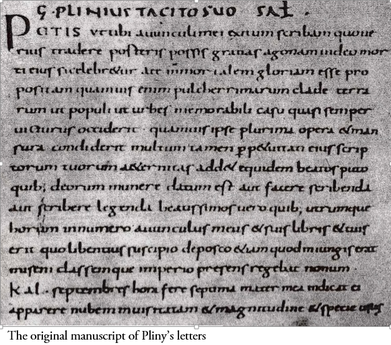 G·PLINIUS TACITO SUO SAL·
PETIS ut tibi auunculi mei exitum scribam quoue
rius tradere posteris possis gratias ago nam uideo mor
ti eius si celebr&ur a te immortalem gloriam esse pro
positam quamuis enim pulcherrimarum clade terra
rum ut populi ut urbes memorabili casu quasi semper
uicturus occiderit quamuis ipse plurima opera & man
sura condiderit multum tamen eius scrip
torum tuorum a&ernitas add& equidem beatos puto
quib; deorum munere datum est aut facere scribenda
aut scribere legenda beatissimos uero quib; utrumque
horum in numero auunculus meus & suis libris & tuis
erit quo libentius suscipio deposco &iam quod iniungis erat
miseni classemque imperio presens regebat nonum
Kal. septembres hora fere septima mater mea indicat ei
apparere nubem inusitata & magnitudine & specie usus
The original manuscript of Pliny's letters